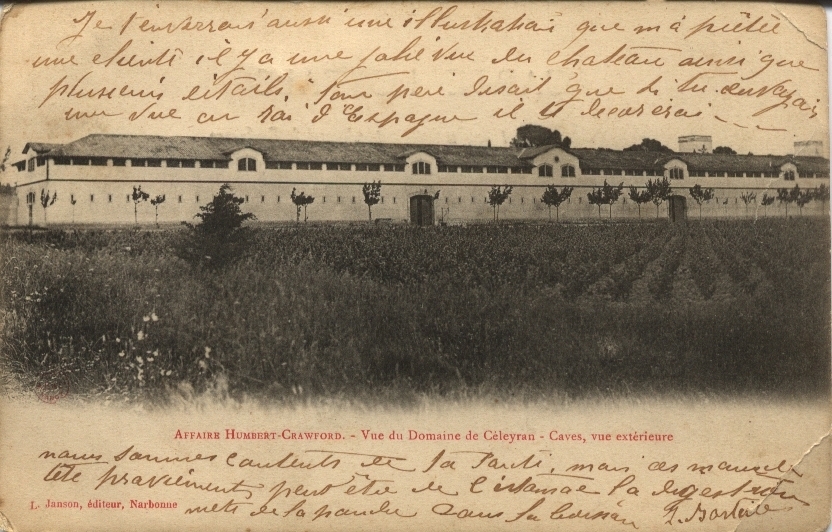 Je t'enverrais aussi une illustration que m'a prêtée
une cliente il y a une jolie vue du château ainsi que
plusieurs détails, Ton père disait que si tu envoyais
une vue au roi d'Espagne il te
AFFAIRE HUMBERT-CRAWFORD. - Vue du Domaine de Céleyran - Caves, vue extérieure
nous sommes contents de ta santé, mais ces maux de
tête proviennent peut être de l'estomac la digestion
L. Janson, éditeur, Narbonne
mets de la poudre dans ta boisson